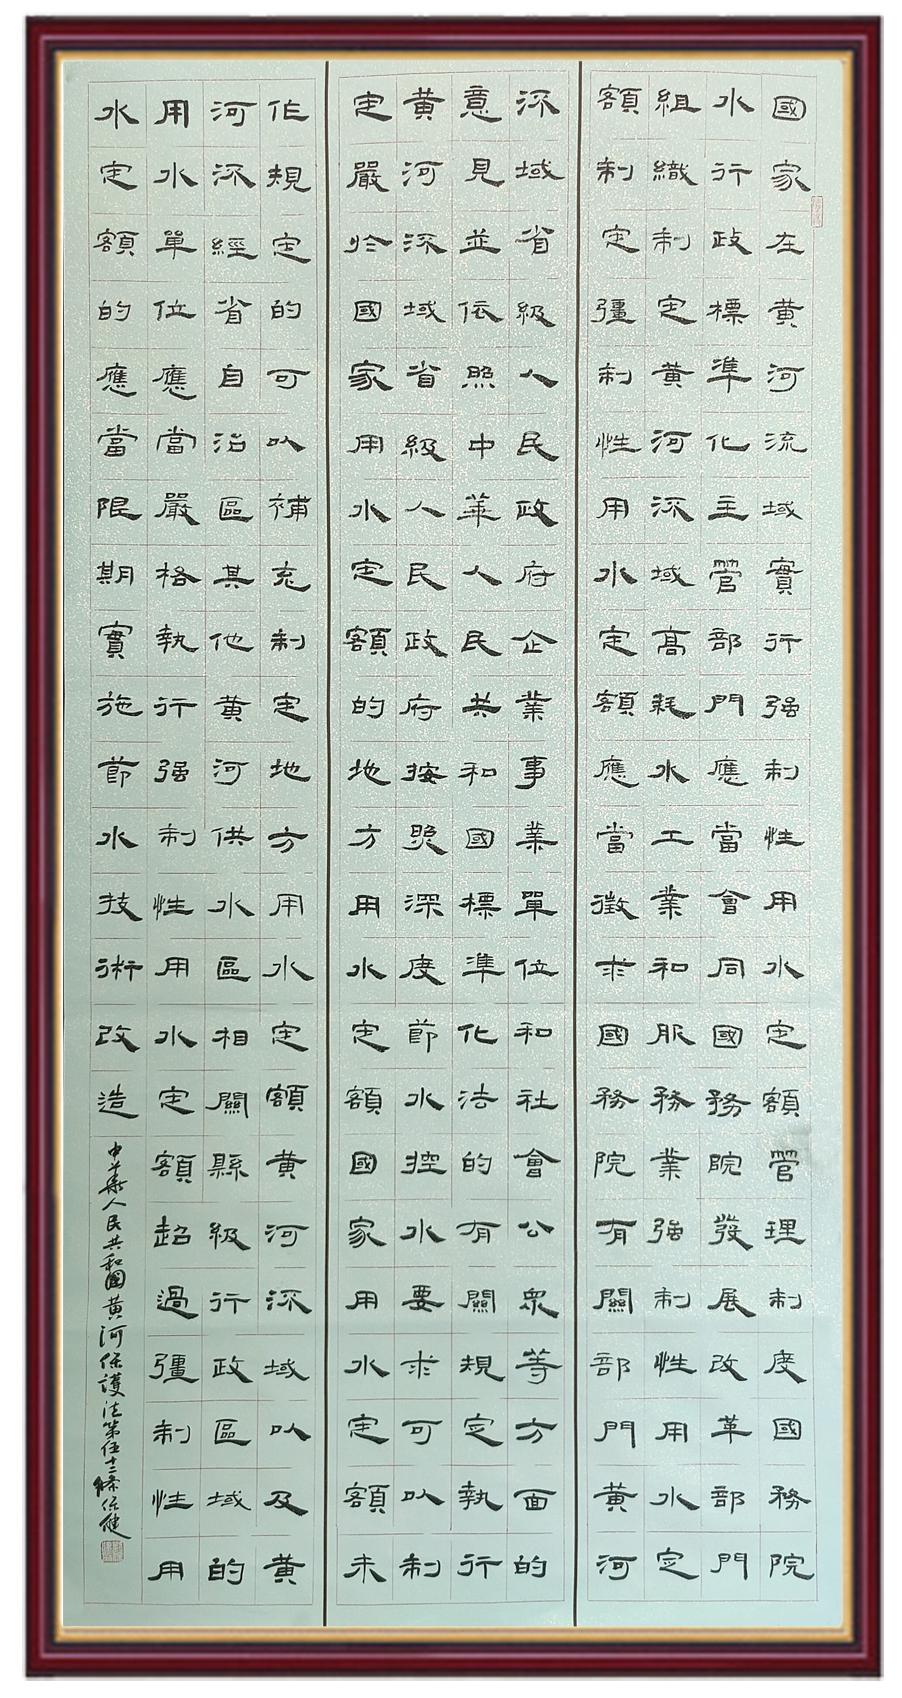 國家在黃河流域實行强制性用水定額管理制度國務院
水行政標準化主管部門應當會同國務院發展改革部門
組織制定黃河流域高耗水工業和服務業强制性用水定
額制定彊制性用水定額應當徵求國務院有關部門黃河
流域省級人民政府企業事業單位和社會公眾等方面的
意見並依照中華人民共和國標準化法的有關規定執行
黃河流域省級人民政府按照深度節水控水要求可以制
定嚴於國家用水定額的地方用水定額國家用水定額未
作規定的可以補充制定地方用水定額黃河流域以及黃
河流經省自治區其他黃河供水區相關縣級行政區域的
用水單位應當嚴格執行强制性用水定額超過彊制性用
水定額的應當限期實施節水技術改造
中華人民共和國黃河保護法第伍十二條